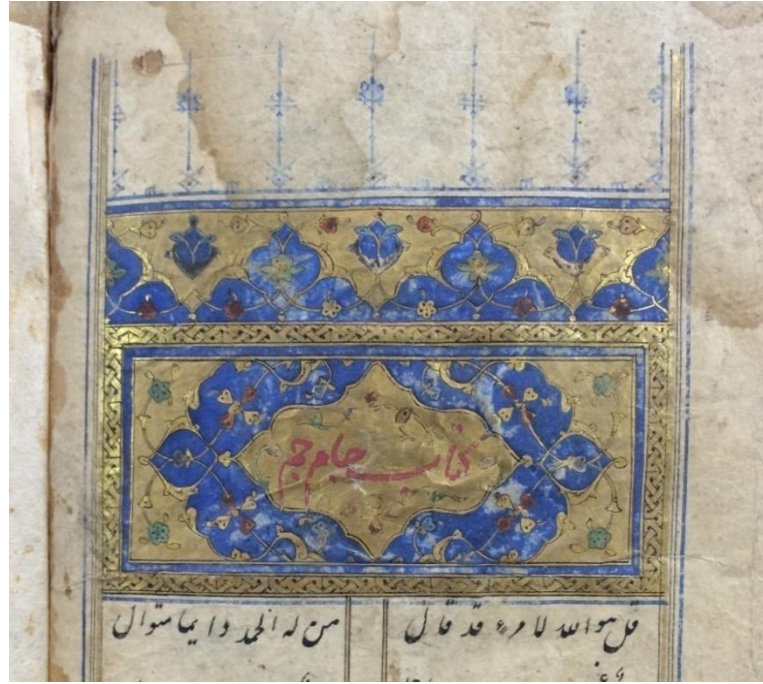 کتاب جام جم
قل هو الله لامرء قد قال من له الحمد دایما متوال